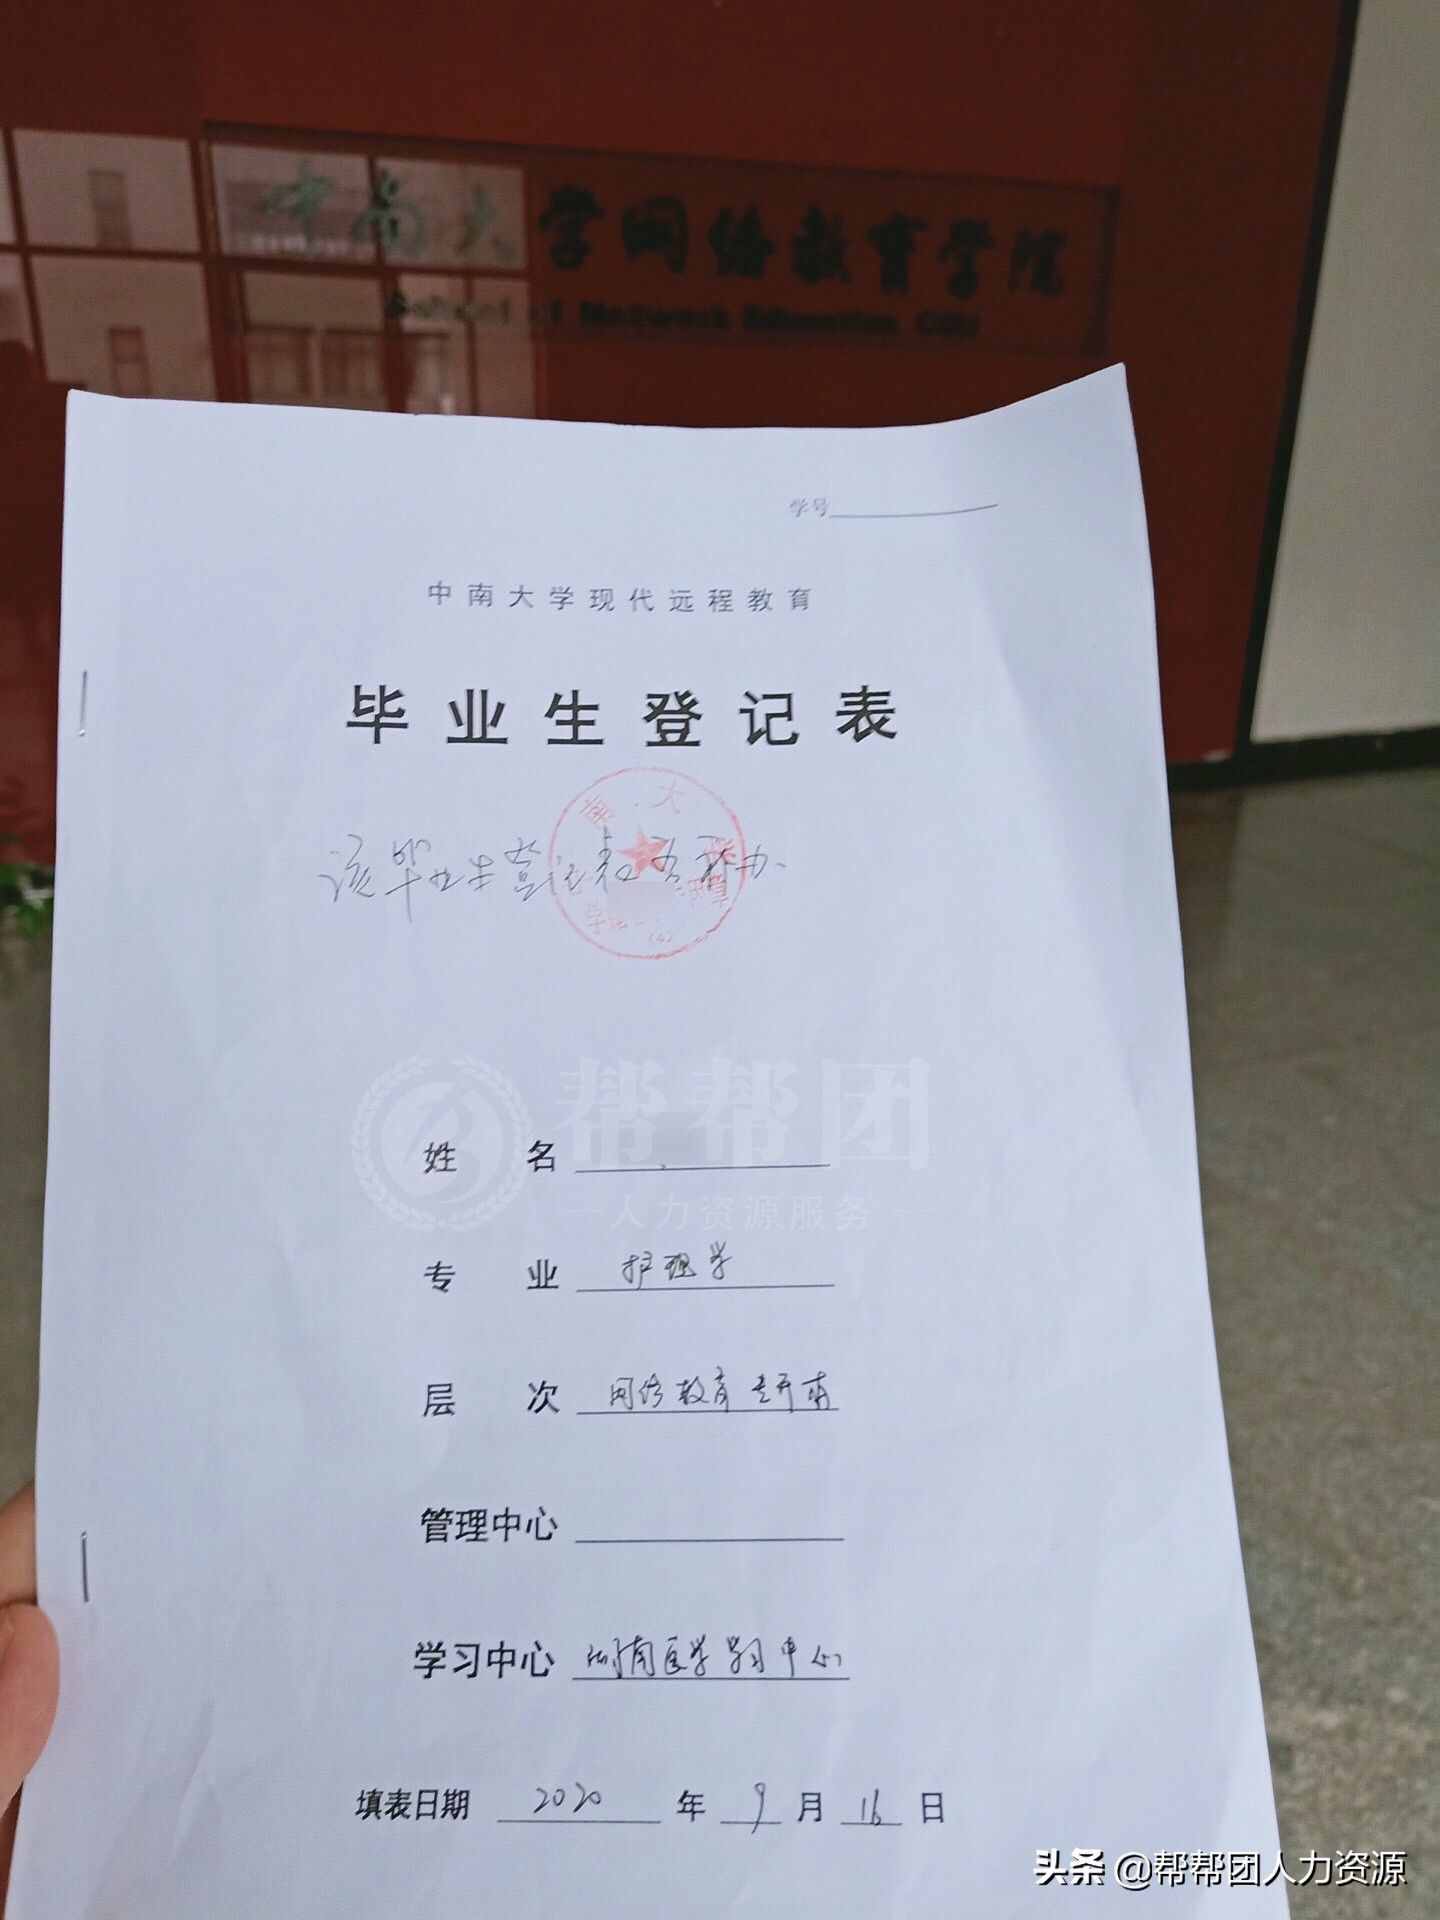 中南大学网络教育学院
School of Network Education CSU
学号
中南大学现代远程教育
毕业生登记表
该毕业生登记表为补办
帮帮团
人力资源服务
姓 名
专 业 护理学
层 次 网络教育专升本
管理中心
学习中心 湖南医学学习中心
填表日期 2020 年 9 月 16 日
头条 @帮帮团人力资源